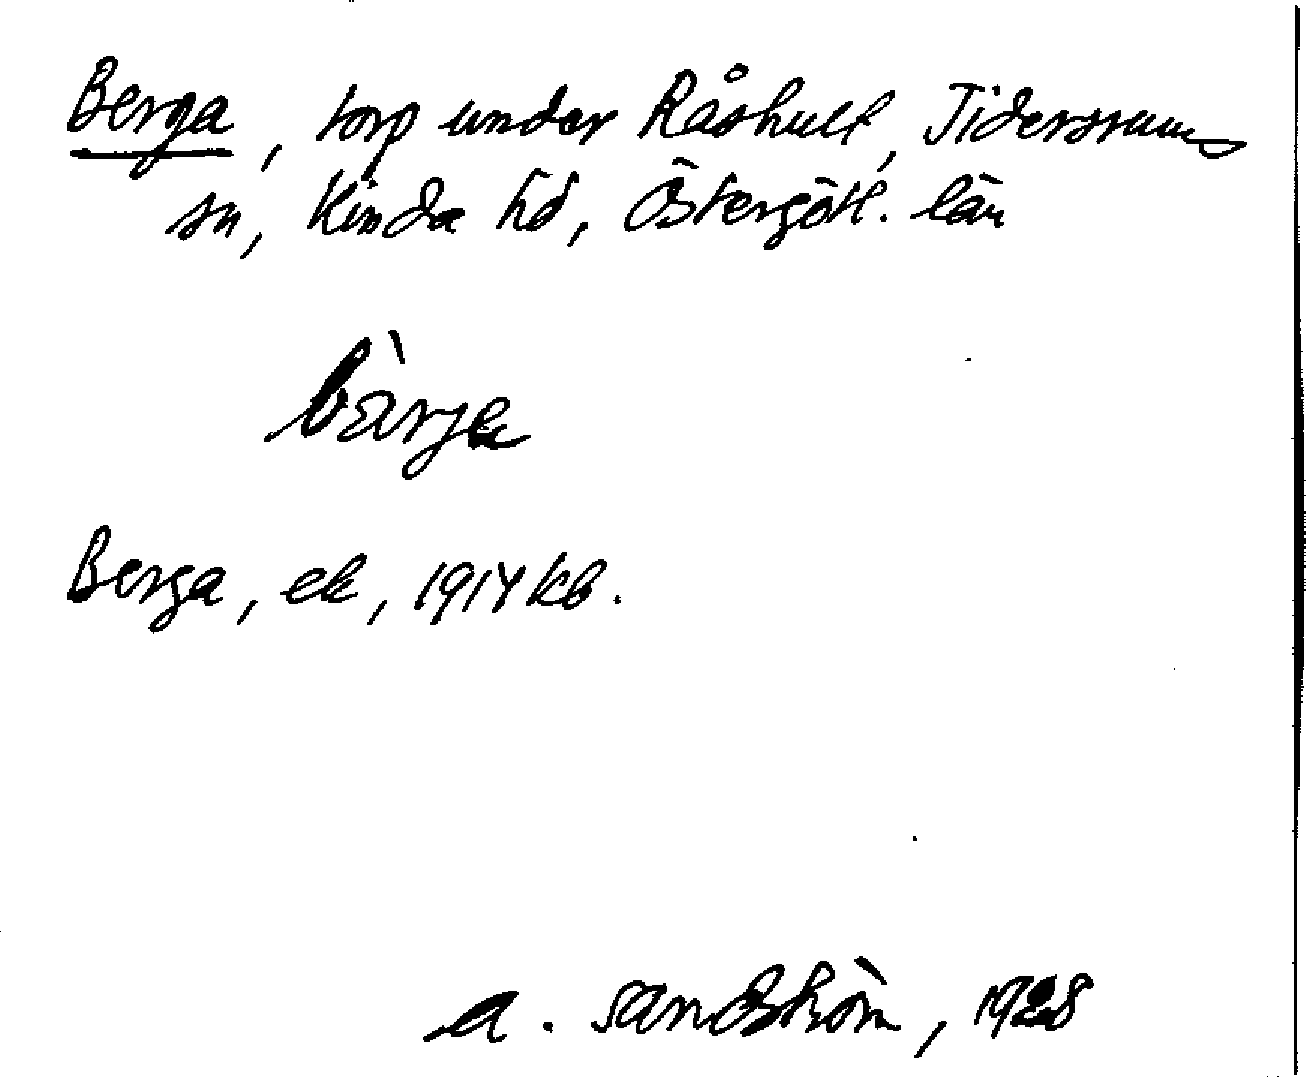 Berga, torp under Råshult, Tidersrums
sn, Kinda hd, Östergötl. län
bàrja
Berga, ek, 1914 kb.
A. Sandström, 1928